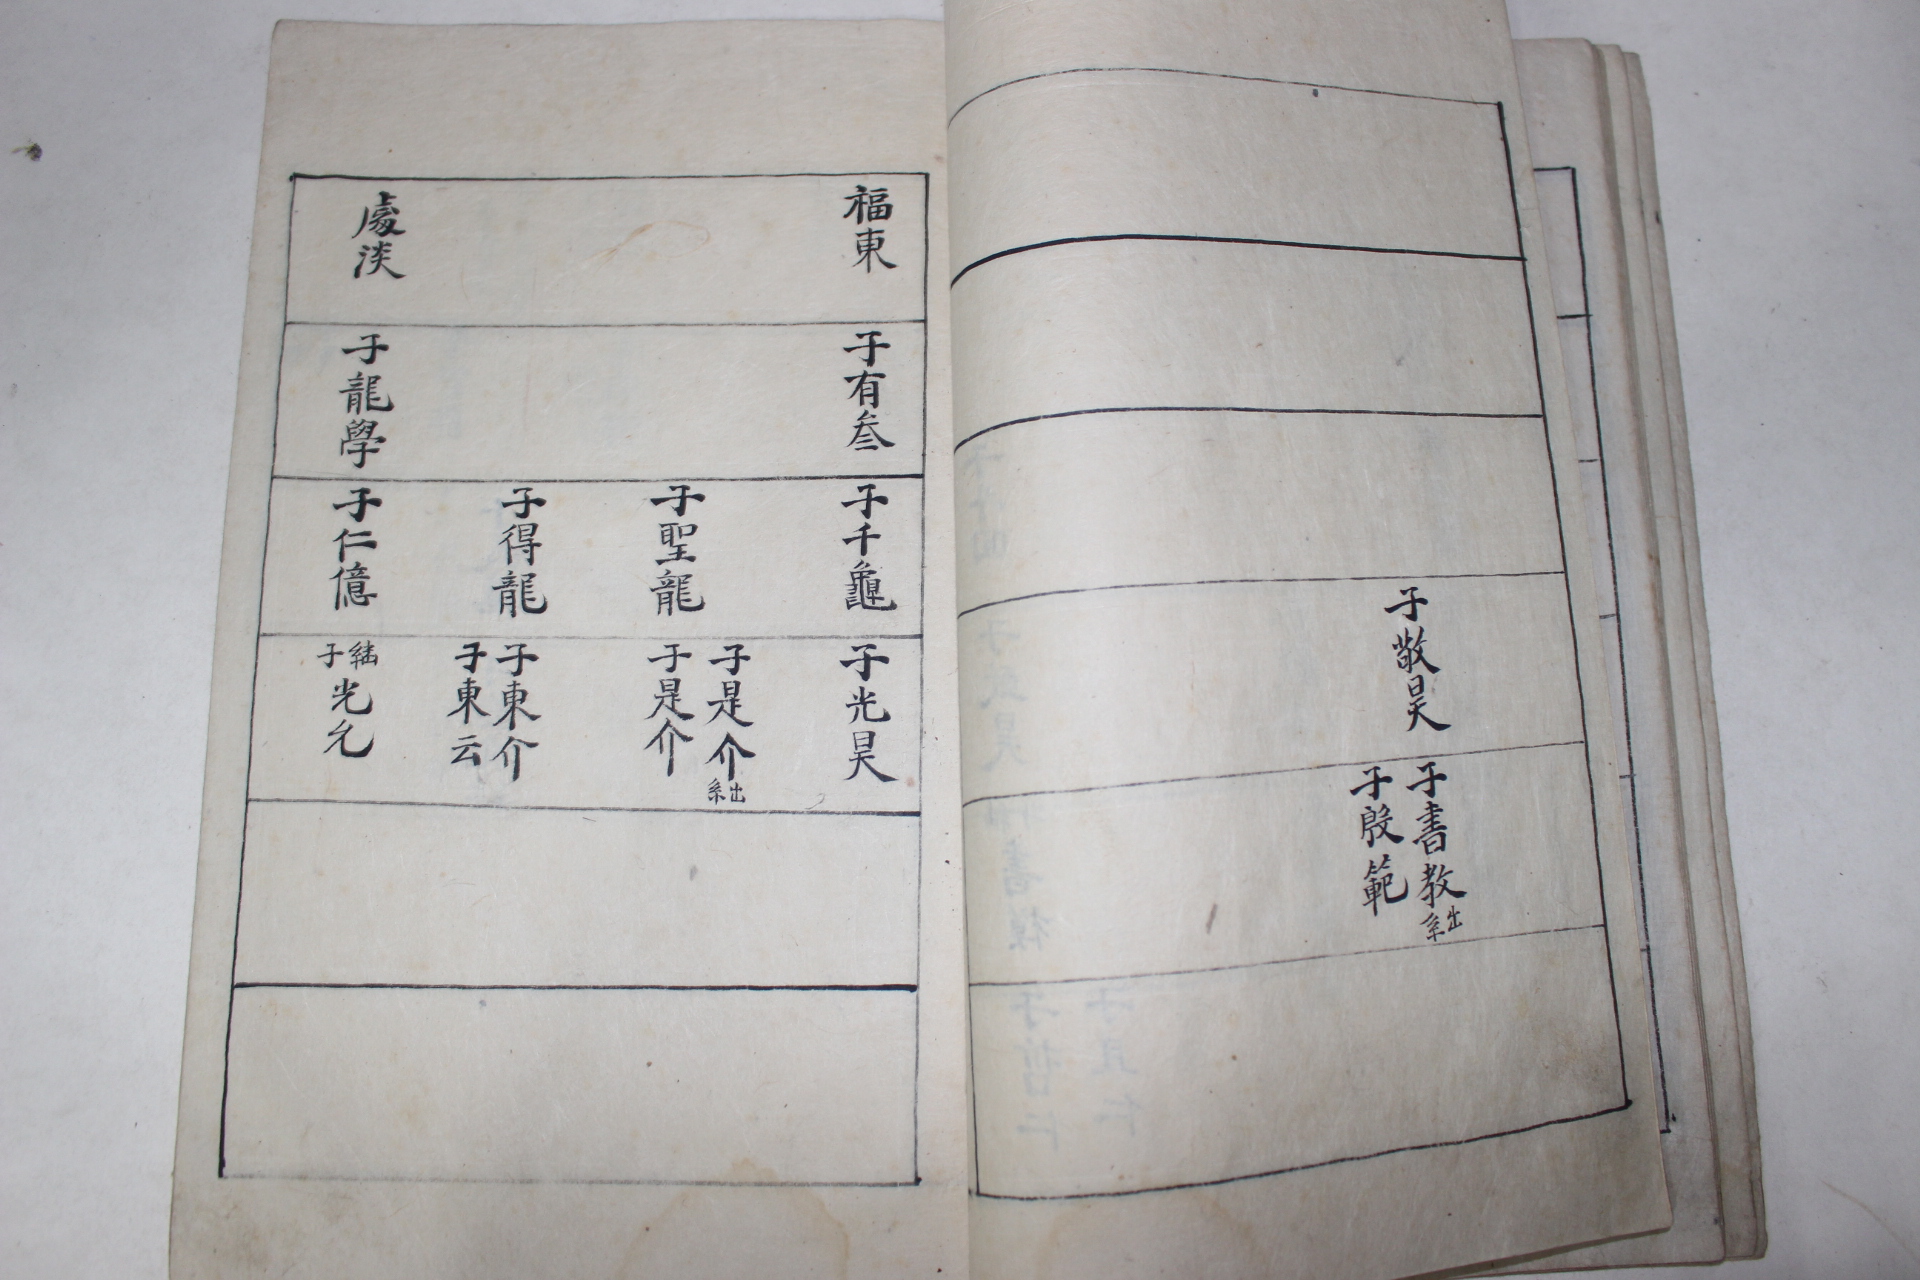 子敬昊
子書教出系
子殷範
福東
處淡
子有叁
子龍學
子千龜
子聖龍
子得龍
子仁億
子光昊
子是介出系
子是介
子東介
子東云
繼子光允